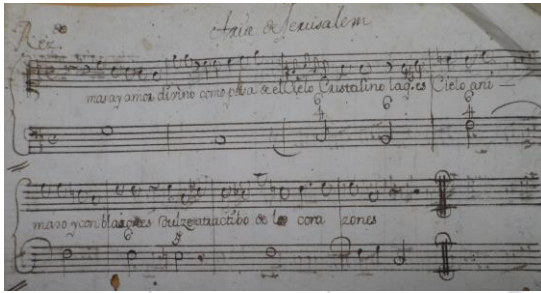 Aria de Jerusalem
Rez.do
mas ay amor divino como pasa de el Cielo Cristalino la q.e es Cielo ani
6 6 6
4 4
maso y con blasones Dulze atractibo de los cora zones
6 5